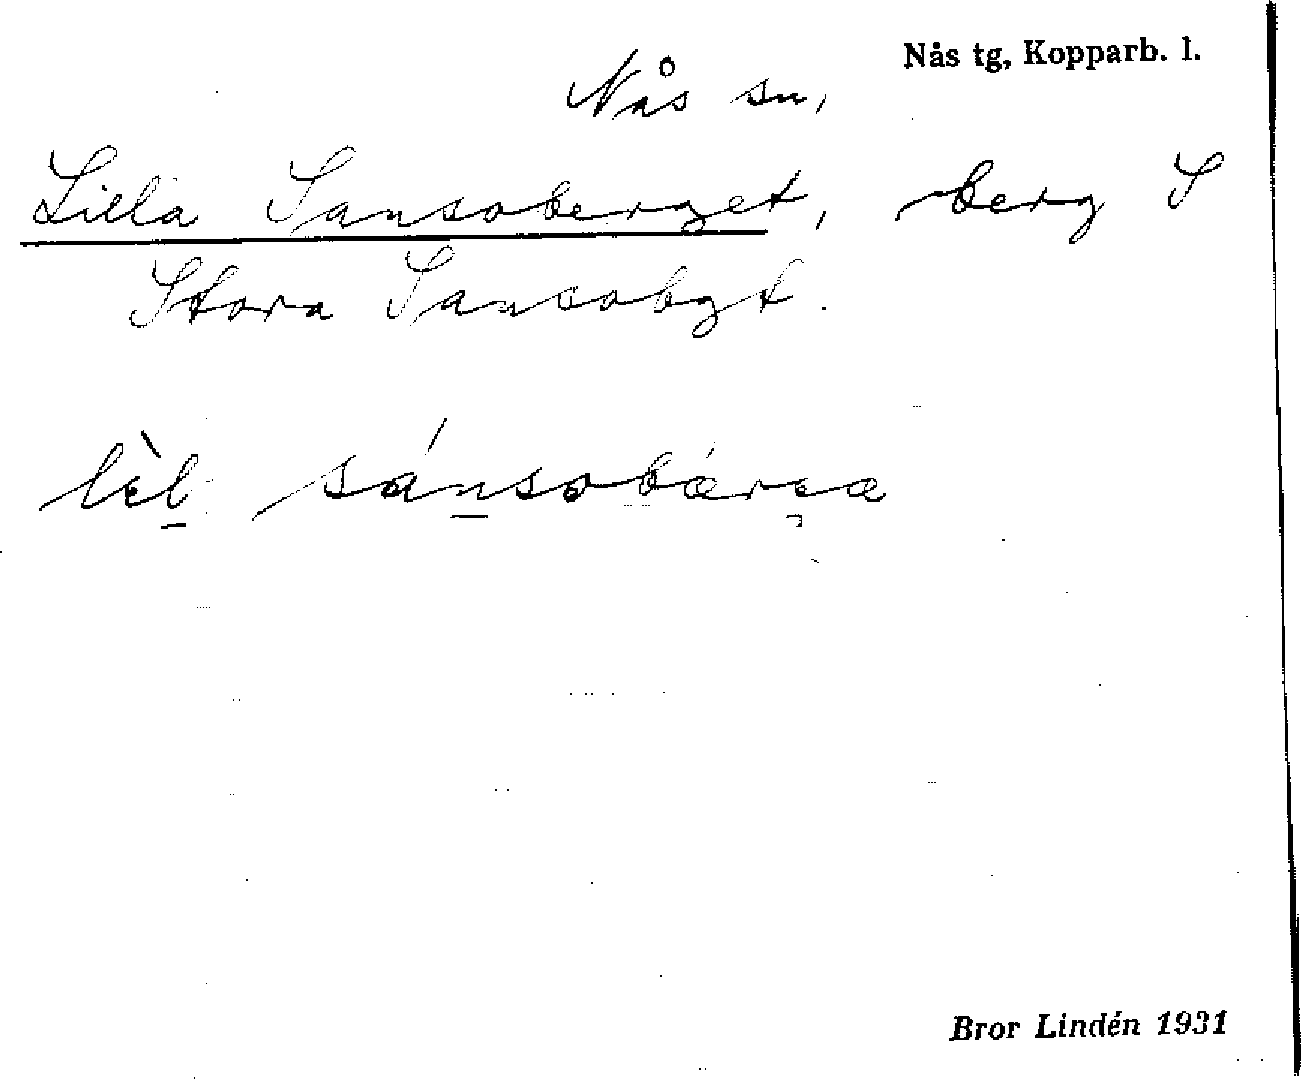 Nås tg, Kopparb. l.
Nås sn,
Lilla Sansoberget, berg S
Stora Sansobgt.
lèl sánsobærea
Bror Lindén 1931